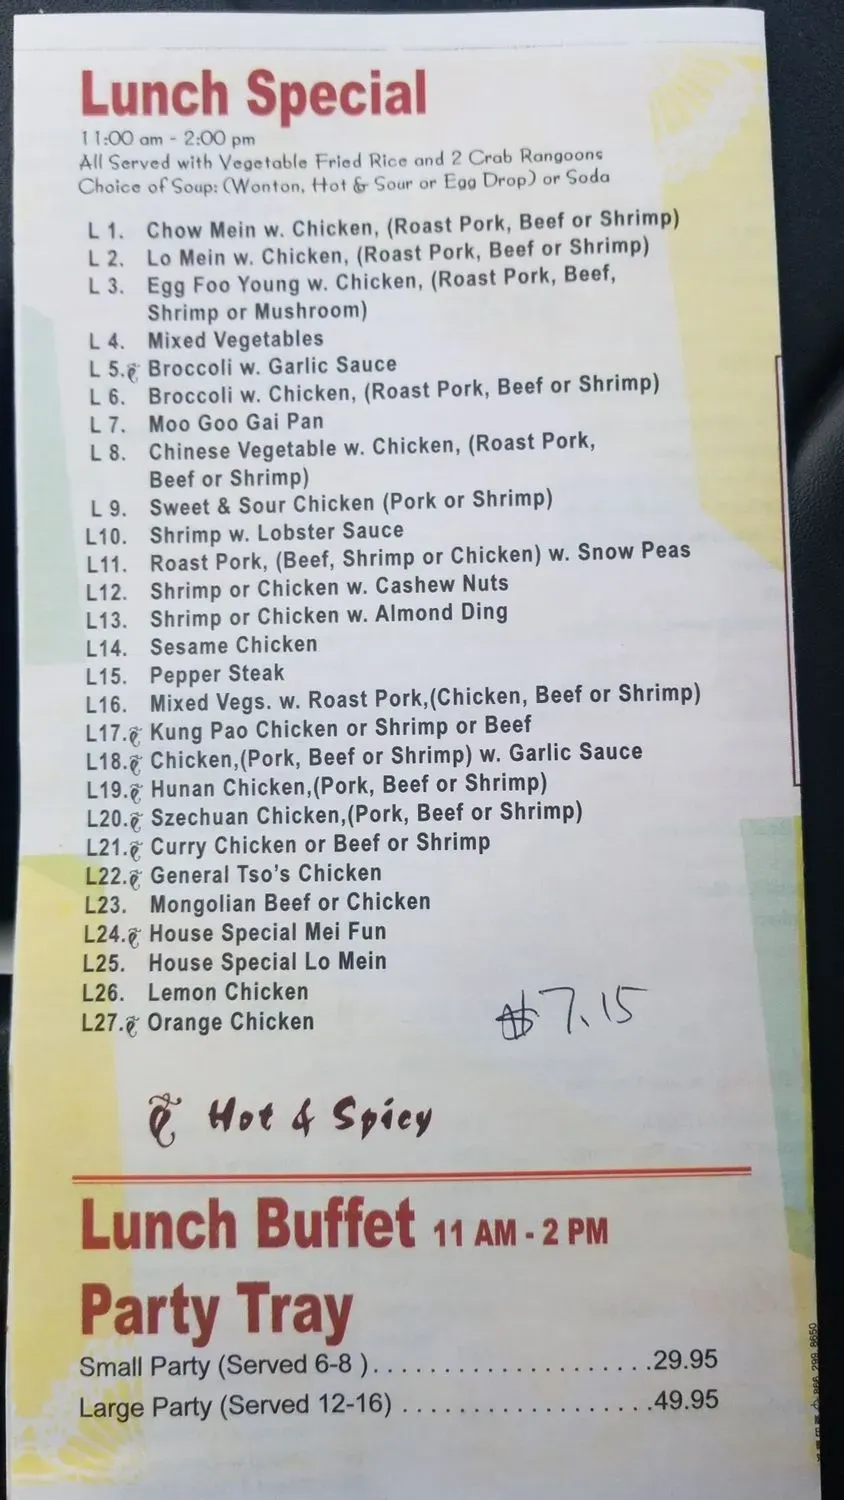 Lunch Special
11:00 am - 2:00 pm
All Served with Vegetable Fried Rice and 2 Crab Rangoons
Choice of Soup: (Wonton, Hot & Sour or Egg Drop) or Soda
L 1. Chow Mein w. Chicken, (Roast Pork, Beef or Shrimp)
L 2. Lo Mein w. Chicken, (Roast Pork, Beef or Shrimp)
L 3. Egg Foo Young w. Chicken, (Roast Pork, Beef,
Shrimp or Mushroom)
L 4. Mixed Vegetables
L 5. Broccoli w. Garlic Sauce
L 6. Broccoli w. Chicken, (Roast Pork, Beef or Shrimp)
L 7. Moo Goo Gai Pan
L 8. Chinese Vegetable w. Chicken, (Roast Pork,
Beef or Shrimp)
L 9. Sweet & Sour Chicken (Pork or Shrimp)
L10. Shrimp w. Lobster Sauce
L11. Roast Pork, (Beef, Shrimp or Chicken) w. Snow Peas
L12. Shrimp or Chicken w. Cashew Nuts
L13. Shrimp or Chicken w. Almond Ding
L14. Sesame Chicken
L15. Pepper Steak
L16. Mixed Vegs. w. Roast Pork,(Chicken, Beef or Shrimp)
L17. Kung Pao Chicken or Shrimp or Beef
L18. Chicken,(Pork, Beef or Shrimp) w. Garlic Sauce
L19. Hunan Chicken,(Pork, Beef or Shrimp)
L20. Szechuan Chicken,(Pork, Beef or Shrimp)
L21. Curry Chicken or Beef or Shrimp
L22. General Tso's Chicken
L23. Mongolian Beef or Chicken
L24. House Special Mei Fun
L25. House Special Lo Mein
L26. Lemon Chicken
L27. Orange Chicken
$7.15
Hot & Spicy
Lunch Buffet 11 AM - 2 PM
Party Tray
Small Party (Served 6-8 ).....................29.95
Large Party (Served 12-16) ...................49.95
866 299 8650